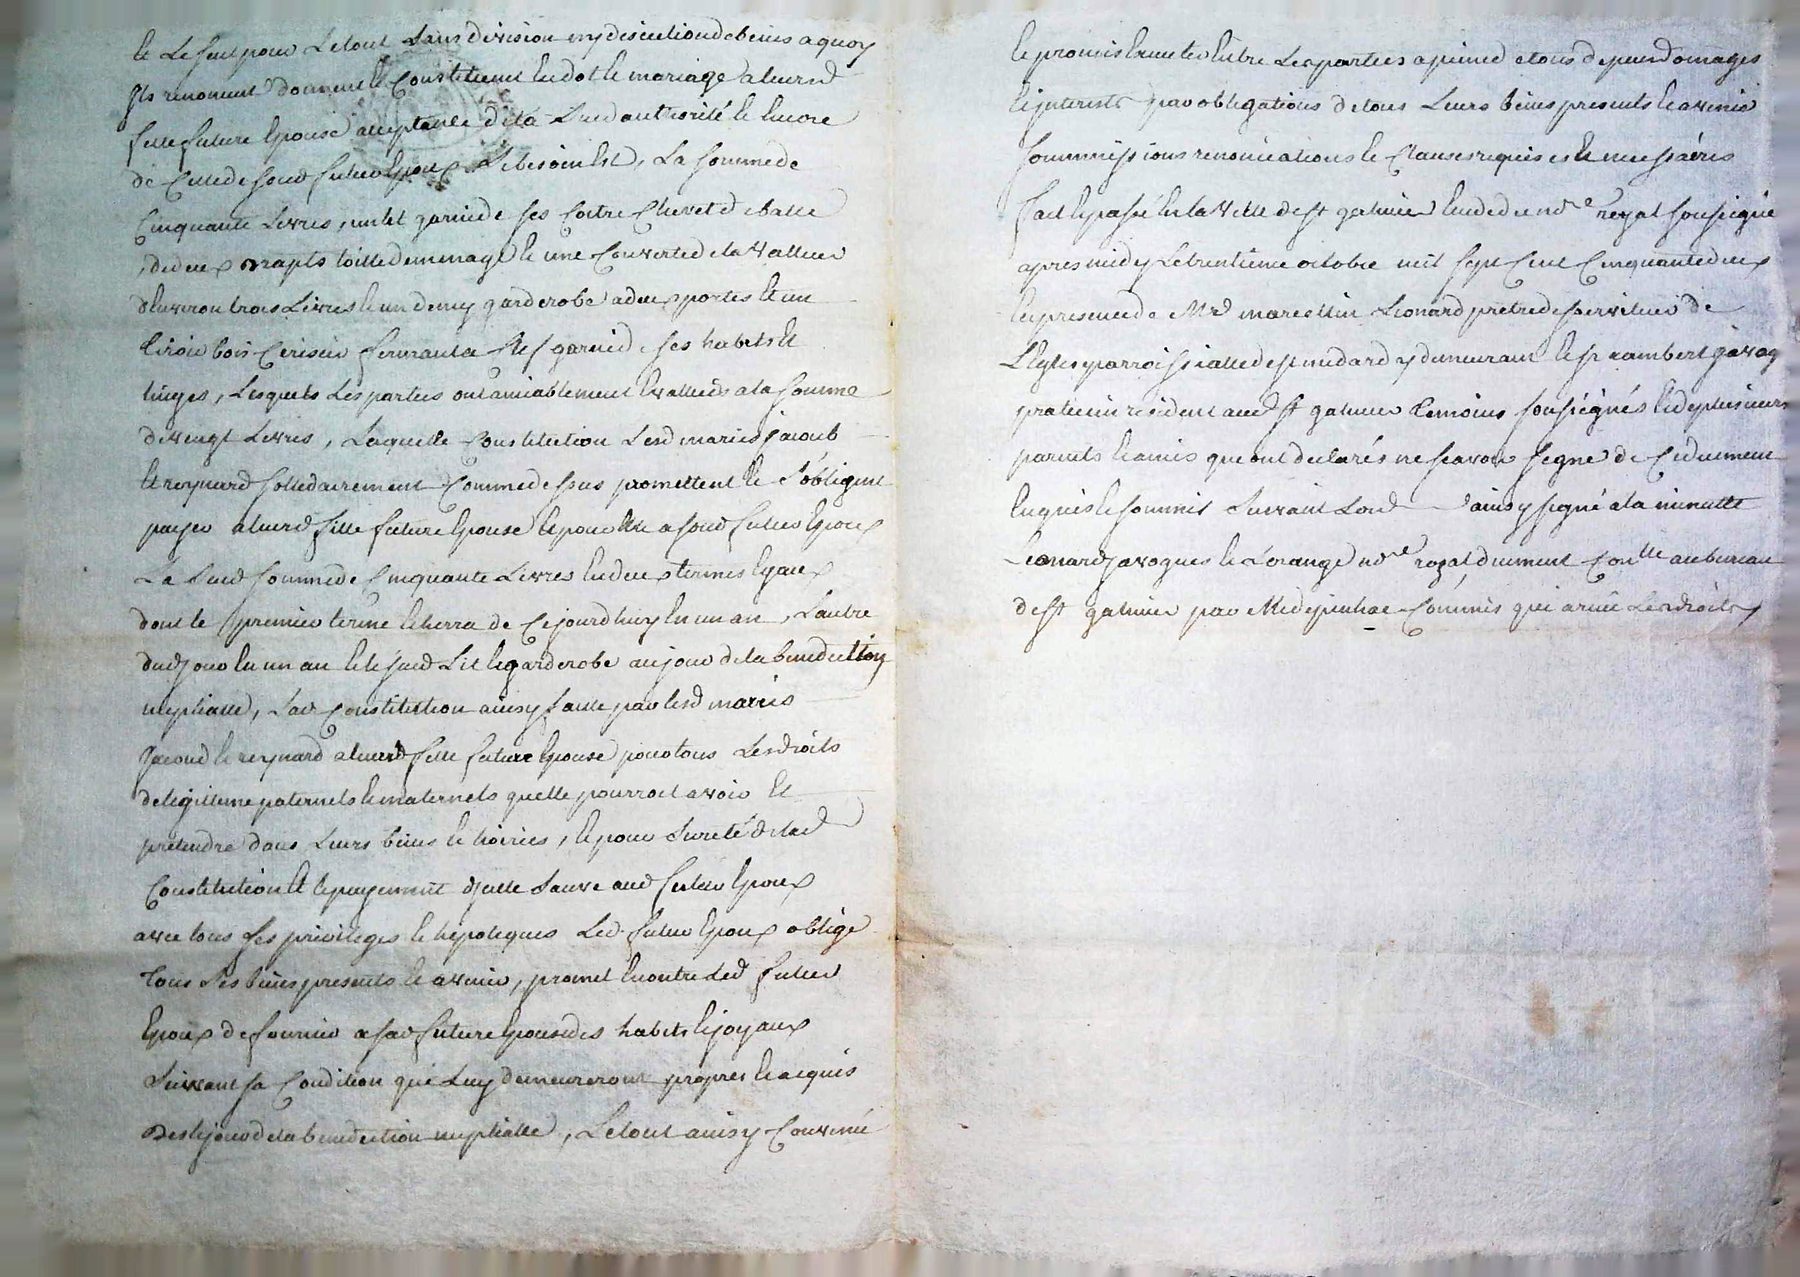 et Le seul pour Letout Sans division ny discution de biens a quoy
Ils renoncent donnent et Constituent en dot et mariage a leurd
fille future Epouse acceptante de la Susd authorité et Encore
de Celle de soud futur Epoux Sibesoin Est, La somme de
Cinquante Livres, un lit garni de ses Coitre Chevet de balle
, de deux drapts toille de menage et une Couverte de la valleur
d'environ trois Livres et un demy garderobe a deux portes et un
tiroir bois Cerisier fermant a Clef garnie de ses habits et
linges, Lesquels Les parties ont amiablement Evallués a la somme
de vingt Livres, Laquelle Constitution Lesd mariés jacoud
et reynard sollidairement Comme dessus promettent et S'obligent
payer a leurd fille future Epouse et pour Elle a soud futur Epoux
La Susd somme de Cinquante Livres En deux termes Egaux
dont le premier terme Echerra de Cejourdhuy En un an, Lautre
dud jour En un an Et le susd Lit et garderobe au jour de la benediction
nuptialle, Lad Constitution ainsy faitte par lesd mariés
Jacoud et reynard a leurd fille future Epouse pour tous Les droits
de legitime paternels et maternels quelle pourroit avoir Et
pretendre dans Leurs biens et hoiries, et pour Sureté de lad
Constitution et le payement d'jcelle Sauve aud futur Epoux
avec tous ses privileges et hipoteques Led futur Epoux oblige
tous Ses biens presents et avenir, promet Enoutre Led futur
Epoux de fournir a sad future Epouse des habits et joyaux
Suivant sa Condition qui Luy demeureront propres et acquis
Des le jour de la benediction nuptialle, Letout ainsy Convenû
et promis Executer Entre Les parties a peine de tous depens domages
et jnterests par obligations de tous Leurs biens presents et avenir
soummissions renonciations et Clauses requises et necessaires
fait et passé En la Ville de St galmier Etude du nore royal soussigné
apres midy Le trentieme octobre mil sept Cent Cinquante deux
En presence de Mre marcellin Leonard pretre desserviteur de
L'Eglise parroissialle de st medard y demeurant et sr rambert javog
praticien resident aud St galmier temoins soussignés Et de plusieurs
parents et amis qui ont declarés ne sçavoir signer de Ce duement
Enquis et sommés Suivant Lord ainsy signé a la minutte
Leonard javogues et Lorange nore royal, duement Conllé au bureau
de St galmier par Me depinhac Commis qui a reçu Les droits